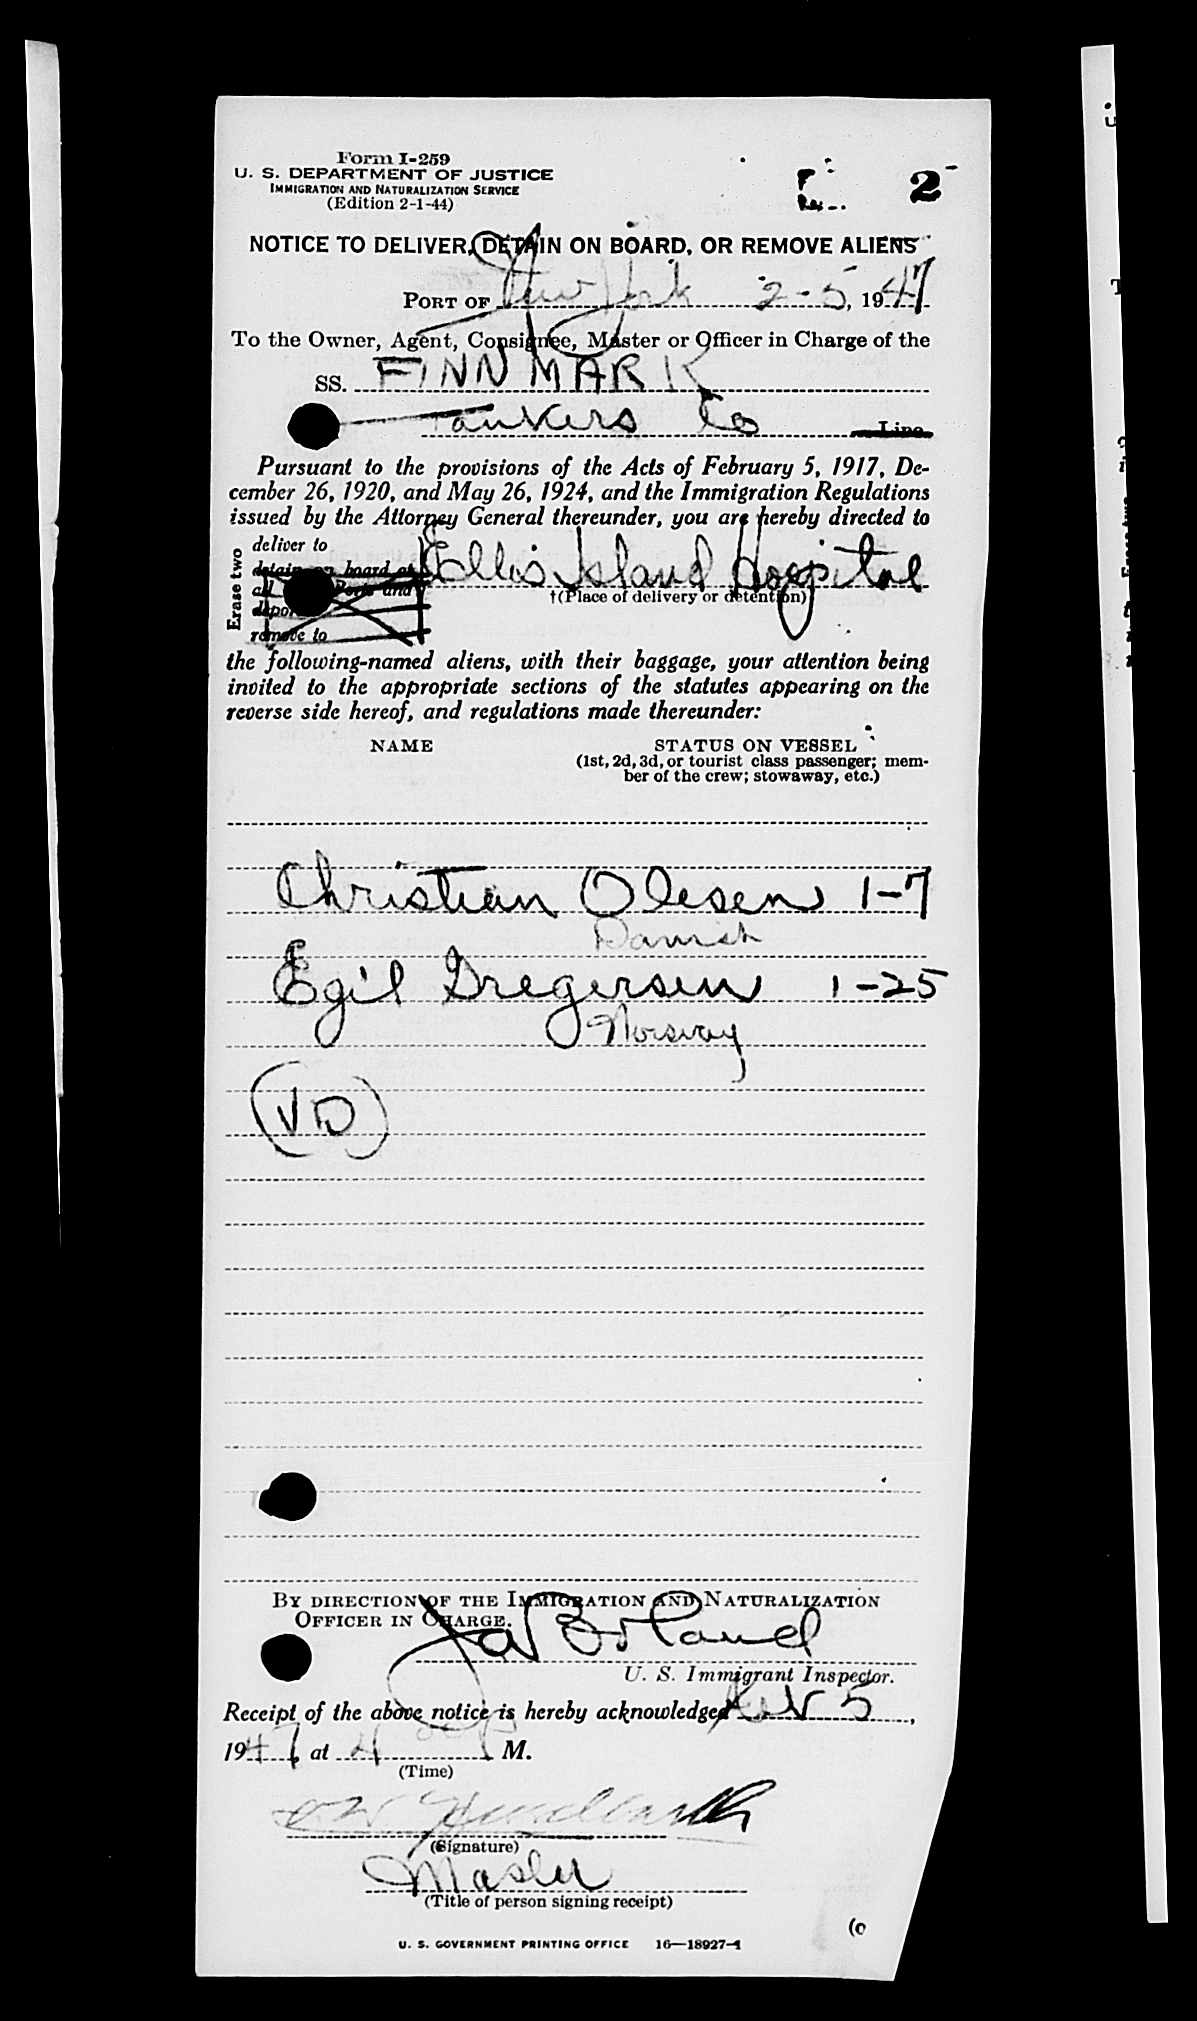 Form I-259
U. S. DEPARTMENT OF JUSTICE
IMMIGRATION AND NATURALIZATION SERVICE
(Edition 2-1-44)
2
NOTICE TO DELIVER, DETAIN ON BOARD, OR REMOVE ALIENS
PORT OF New York 2-5, 1947
To the Owner, Agent, Consignee, Master or Officer in Charge of the
SS. FINNMARK
Tankers Co Line
Pursuant to the provisions of the Acts of February 5, 1917, De-
cember 26, 1920, and May 26, 1924, and the Immigration Regulations
issued by the Attorney General thereunder, you are hereby directed to
Erase two
deliver to Ellis Island Hospital
detain on board at
†(Place of delivery or detention)
all Ports and
remove to
the following-named aliens, with their baggage, your attention being
invited to the appropriate sections of the statutes appearing on the
reverse side hereof, and regulations made thereunder:
NAME STATUS ON VESSEL
(1st, 2d, 3d, or tourist class passenger; mem-
ber of the crew; stowaway, etc.)
Christian Olesen 1-7
Danish
Egil Gregersen 1-25
Norway
VD
BY DIRECTION OF THE IMMIGRATION AND NATURALIZATION
OFFICER IN CHARGE.
Borland
U. S. Immigrant Inspector.
Receipt of the above notice is hereby acknowledged 5,
1947 at 4 P M.
(Time)
(Signature)
Master
(Title of person signing receipt)
U. S. GOVERNMENT PRINTING OFFICE 16—18927-1